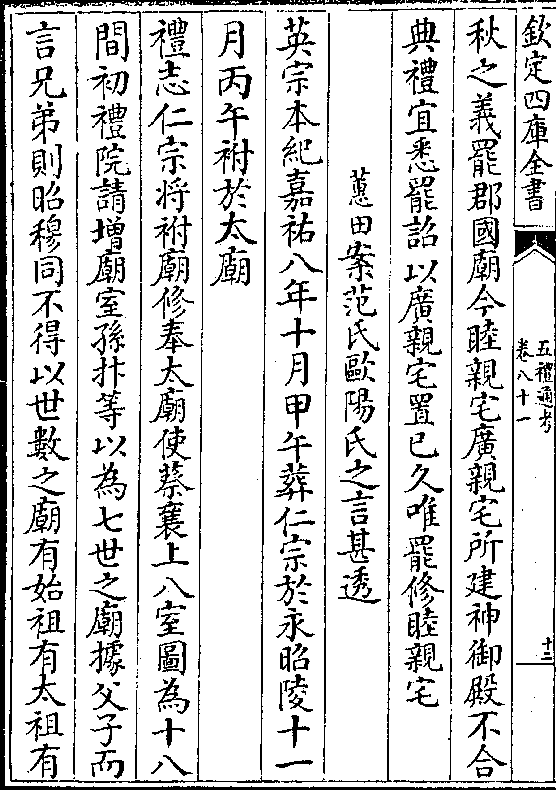 欽定四庫全書
五禮通考
卷八十一
十二
秋之義罷郡國廟今睦親宅廣親宅所建神御殿不合
典禮宜悉罷詔以廣親宅置已久唯罷修睦親宅
蕙田案范氏歐陽氏之言甚透
英宗本紀嘉祐八年十月甲午葬仁宗於永昭陵十一
月丙午祔於太廟
禮志仁宗将祔廟修奉太廟使蔡襄上八室圖為十八
間初禮院請增廟室孫抃等以為七世之廟據父子而
言兄弟則昭穆同不得以世數之廟有始祖有太祖有